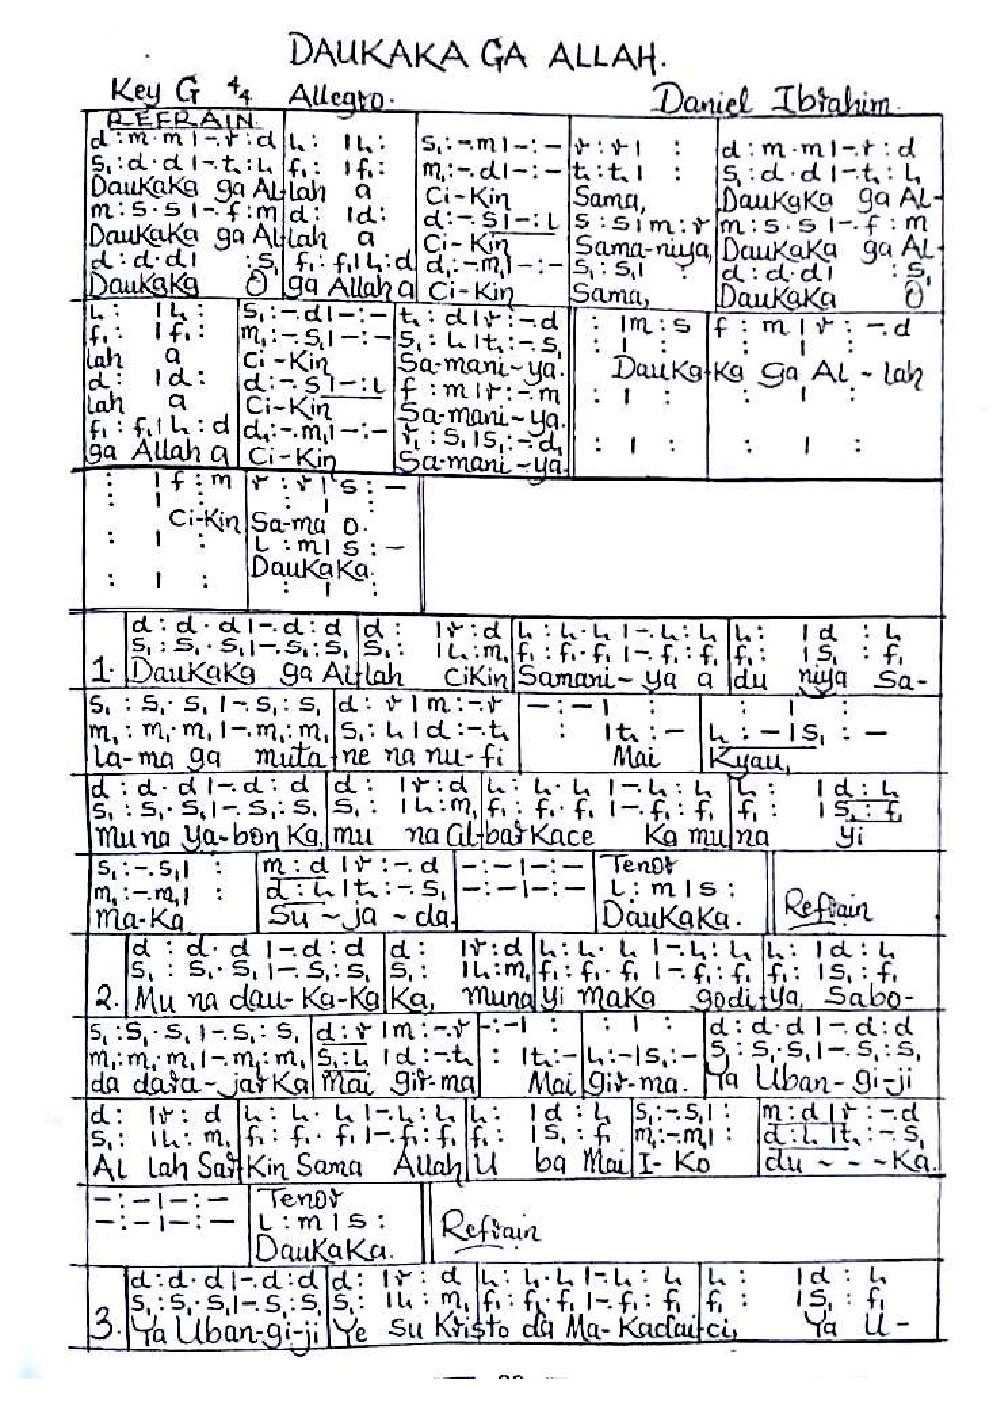 DAUKAKA GA ALLAH.
Key G 4/4 Allegro. Daniel Ibrahim.
REFRAIN
d : m . m | - . r : d | l₁ : | l₁ : | s₁ : - . m | - : - | r : r | : | d : m . m | - . r : d
s₁ : d . d | - . t₁ : l₁ | f₁ : | f₁ : | m₁ : - . d | - : - | t₁ : t₁ | : | s₁ : d . d | - . t₁ : l₁
Daukaka ga Al- lah a Ci-Kin Sama, Daukaka ga Al-
m : s . s | - . f : m | d : | d : | d : - . s | - : l | s : s | m : r | m : s . s | - . f : m
Daukaka ga Al- lah a Ci-Kin Sama-niya, Daukaka ga Al-
d : d . d | : s₁ | f₁ : f₁ | l₁ : d | d₁ : - . m₁ | - : - | s₁ : s₁ | : | d : d . d | : s₁
Daukaka O ga Allah a Ci-Kin Sama, Daukaka O
l₁ : | l₁ : | s₁ : - . d | - : - | t₁ : d | r : - . d | : | m : s | f : m | r : - . d
f₁ : | f₁ : | m₁ : - . s₁ | - : - | s₁ : l₁ | t₁ : - . s₁ | : | : | : | :
lah a Ci-Kin Sa-mani-ya. Dauka-Ka ga Al-lah
d : | d : | d : - . s | - : l | f : m | r : - m | : | : | : | :
lah a Ci-Kin Sa-mani-ya.
f₁ : f₁ | l₁ : d | d₁ : - . m₁ | - : - | r₁ : s₁ | s₁ : - . d₁ | : | : | : | :
ga Allah a Ci-Kin Sa-mani-ya.
: | f : m | r : r | s : -
: | : | : | :
Ci-Kin Sa-ma o.
: | : | l : m | s : -
Daukaka.
: | : | : | :
d : d . d | - . d : d | d : | r : d | l₁ : l₁ . l₁ | - . l₁ : l₁ | l₁ : | d : l₁
s₁ : s₁ . s₁ | - . s₁ : s₁ | s₁ : | l₁ : m₁ | f₁ : f₁ . f₁ | - . f₁ : f₁ | f₁ : | s₁ : f₁
1. Daukaka ga Al-lah ciKin Samani-ya a du niya Sa-
s₁ : s₁ . s₁ | - . s₁ : s₁ | d : r | m : - . r | - : - | : | : | :
m₁ : m₁ . m₁ | - . m₁ : m₁ | s₁ : l₁ | d : - . t₁ | : | t₁ : - | l₁ : - | s₁ : -
la-ma ga muta ne na nu-fi Mai Kyau,
d : d . d | - . d : d | d : | r : d | l₁ : l₁ . l₁ | - . l₁ : l₁ | l₁ : | d : l₁
s₁ : s₁ . s₁ | - . s₁ : s₁ | s₁ : | l₁ : m₁ | f₁ : f₁ . f₁ | - . f₁ : f₁ | f₁ : | s₁ : f₁
Muna Ya-bon Ka, mu na al-barkace Ka mu na yi
s₁ : - . s₁ | : | m : d | r : - . d | - : - | - : - | Tenor
m₁ : - . m₁ | : | d : l₁ | t₁ : - . s₁ | - : - | - : - | l : m | s :
Ma-Ka Su - ja - da. Daukaka. Refrain
d : d . d | - . d : d | d : | r : d | l₁ : l₁ . l₁ | - . l₁ : l₁ | l₁ : | d : l₁
s₁ : s₁ . s₁ | - . s₁ : s₁ | s₁ : | l₁ : m₁ | f₁ : f₁ . f₁ | - . f₁ : f₁ | f₁ : | s₁ : f₁
2. Mu na dau-Ka-Ka Ka, muna yi maka godi-ya, Sabo-
s₁ : s₁ . s₁ | - . s₁ : s₁ | d : r | m : - . r | - : - | : | : | : | d : d . d | - . d : d
m₁ : m₁ . m₁ | - . m₁ : m₁ | s₁ : l₁ | d : - . t₁ | : | t₁ : - | l₁ : - | s₁ : - | s₁ : s₁ . s₁ | - . s₁ : s₁
da dara-jar Ka Mai gir-ma Mai gir-ma. Ya Uban-gi-ji
d : | r : d | l₁ : l₁ . l₁ | - . l₁ : l₁ | l₁ : | d : l₁ | s₁ : - . s₁ | : | m : d | r : - . d
s₁ : | l₁ : m₁ | f₁ : f₁ . f₁ | - . f₁ : f₁ | f₁ : | s₁ : f₁ | m₁ : - . m₁ | : | d : l₁ | t₁ : - . s₁
Al lah Sar Kin Sama Allah U ba Mai I-Ko du - - - Ka.
- : - | - : - | Tenor
- : - | - : - | l : m | s :
Daukaka. Refrain
d : d . d | - . d : d | d : | r : d | l₁ : l₁ . l₁ | - . l₁ : l₁ | l₁ : | d : l₁
s₁ : s₁ . s₁ | - . s₁ : s₁ | s₁ : | l₁ : m₁ | f₁ : f₁ . f₁ | - . f₁ : f₁ | f₁ : | s₁ : f₁
3. Ya Uban-gi-ji Ye su Kristo da Ma-Kadai-ci, Ya U-